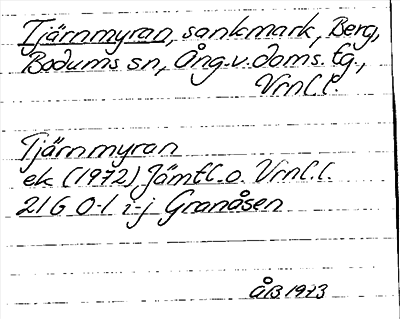 Tjärnmyran, sankmark, Berg,
Bodums sn, Ång. v. doms. tg.,
Vrnl. l.
Tjärnmyran
ek (1972) Jämtl. o. Vrnl. l.
21 G 0-1 i-j Granåsen
ÅB 1973